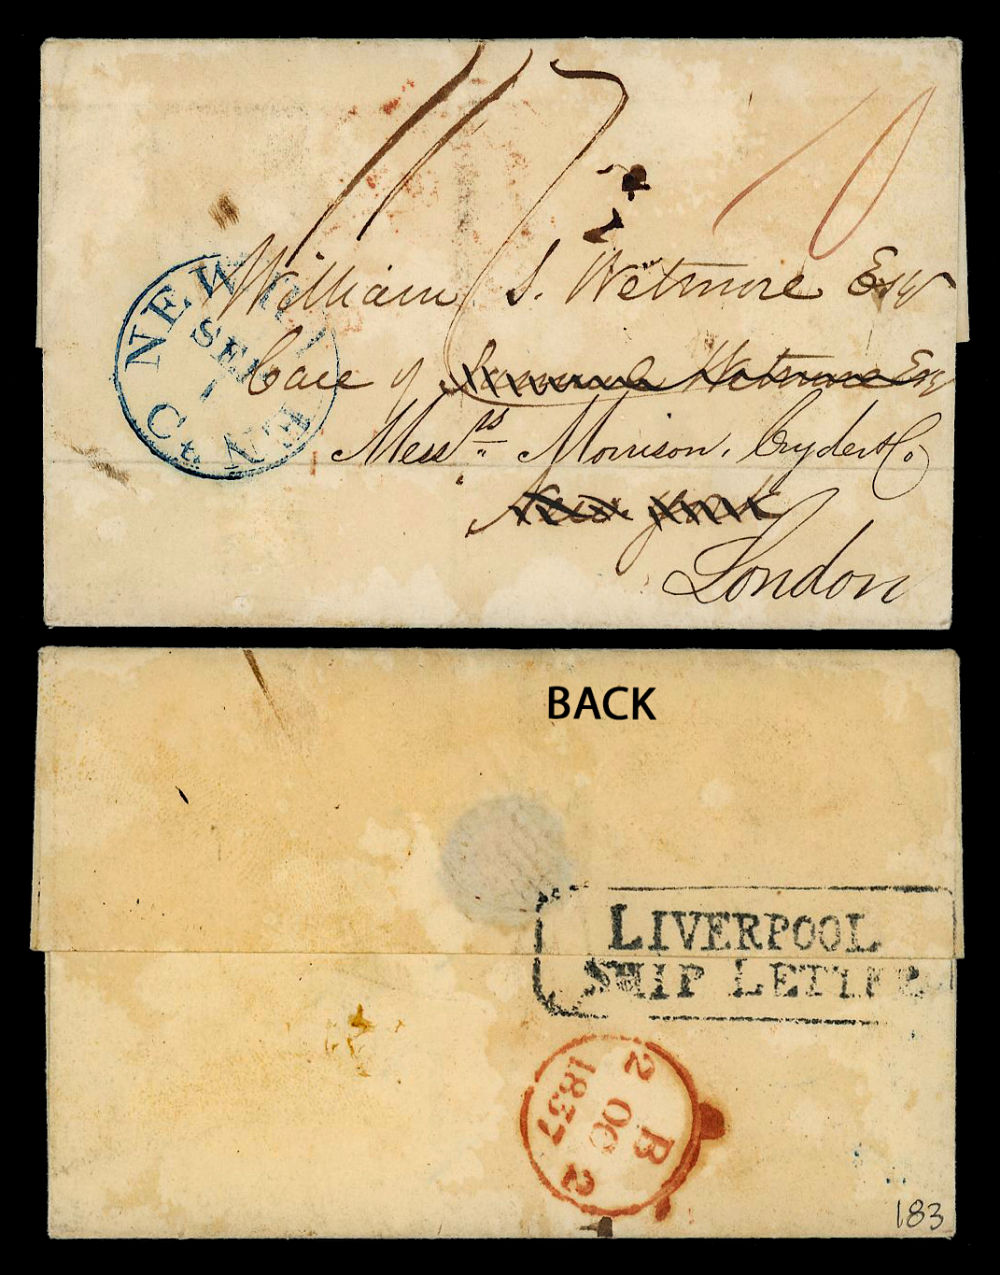 1/7
10
NEW HAVEN
SEP
1
Ct.
William S. Wetmore Esqr
Care of Samuel Wetmore Esq
Messrs Morrison, Cryder & Co
New York
London
BACK
LIVERPOOL
SHIP LETTER
2
B
OC
2
1837
183